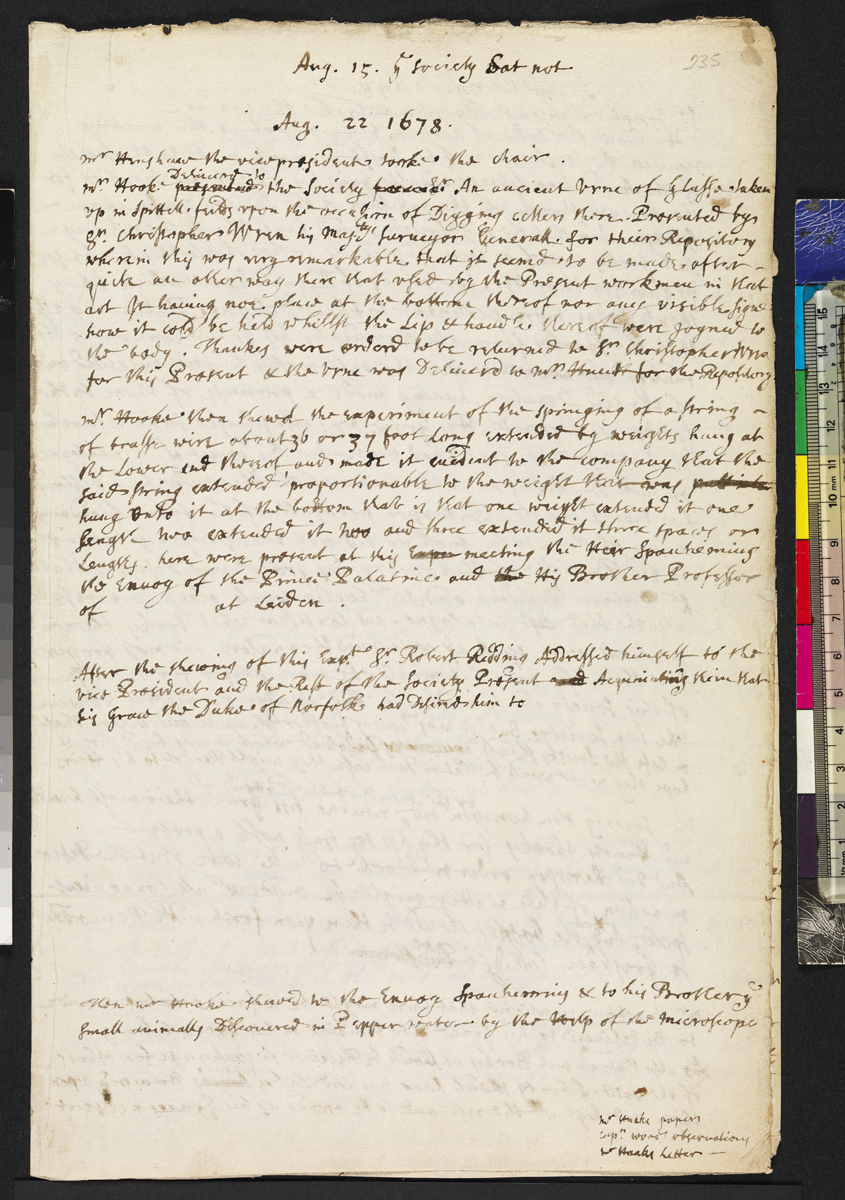 235
Aug. 15. yͤ Society Sat not
Aug. 22 1678.
mr Henshaw the vicepresident tooke the chair.
mr Hooke presented Delivered to the Society from Sr An ancient Vrne of Glasse taken
vp in Spittle-feilds vpon the occasion of Digging cellers there. Presented by
Sr. Christopher Wren his majties Surveyor Generall. for their Repository
wherein this was very remarkable that it seemd to be made after
quite an other way then that vsed by the Present workmen in that
art It having noe place at the bottom thereof nor any visible signe
how it could be held whilst the Lip & handle thereof were Joyned to
the body. Thankes were orderd to be returned to Sr. Christopher Wren
for this Present & the vrne was Deliuerd to mr. Hunt for the Repository.
mr. Hooke then shewd the experiment of the springing of a string
of brasse wire about 36 or 37 foot Long extended by weights hung at
the Lower end thereof and made it evident to the company that the
said string extended proportionable to the weight that was putt into
hung vnto it at the bottom that is that one weight extended it one
length two extended it two and three extended it three spaces or
Lengths. here were present at this Exper meeting the Heer Spanhemius
the Envoy of the Prince Palatine and the His Brother Professor
of at Leiden.
After the shewing of this Expt. Sr. Robert Redding Addressed himself to the
vice President and the Rest of the Society Present and Acquainting them that
his Grace the Duke of Norfolk had Desired him to
Then mr Hooke shewd to the Envoy Spanhemius & to his Brother yͤ
small animalls Discovered in Pepper water by the help of the microscope
mr Haaks papers
Capt. woods observations
mr Haaks Letter